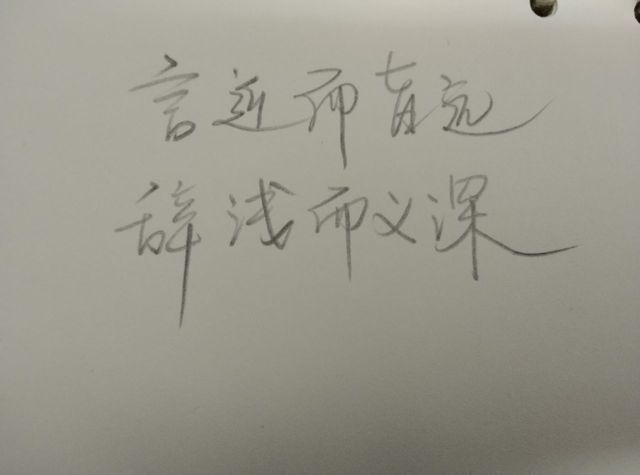 言近而旨远
辞浅而义深